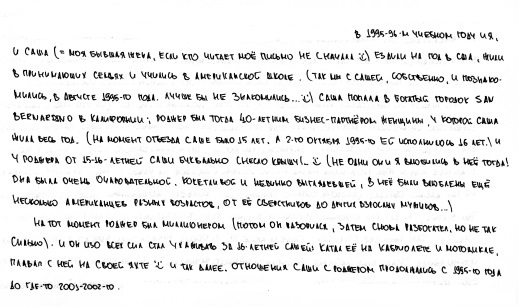 В 1995-96-М УЧЕБНОМ ГОДУ И Я,
И САША (= МОЯ БЫВШАЯ ЖЕНА, ЕСЛИ КТО ЧИТАЕТ МОЁ ПИСЬМО НЕ СНАЧАЛА :) ЕЗДИЛИ НА ГОД В США, ЖИЛИ
В ПРИНИМАЮЩИХ СЕМЬЯХ И УЧИЛИСЬ В АМЕРИКАНСКОЙ ШКОЛЕ. (ТАК МЫ С САШЕЙ, СОБСТВЕННО, И ПОЗНАКО-
МИЛИСЬ, В АВГУСТЕ 1995-ГО ГОДА. ЛУЧШЕ БЫ НЕ ЗНАКОМИЛИСЬ... :) САША ПОПАЛА В БОГАТЫЙ ГОРОДОК SAN
BERNARDINO В КАЛИФОРНИИ; РОДЖЕР БЫЛ ТОГДА 40-ЛЕТНИМ БИЗНЕС-ПАРТНЁРОМ ЖЕНЩИНЫ, У КОТОРОЙ САША
ЖИЛА ВЕСЬ ГОД. (НА МОМЕНТ ОТЪЕЗДА САШЕ БЫЛО 15 ЛЕТ. А 2-ГО ОКТЯБРЯ 1995-ГО ЕЙ ИСПОЛНИЛОСЬ 16 ЛЕТ.) И
У РОДЖЕРА ОТ 15-16-ЛЕТНЕЙ САШИ БУКВАЛЬНО СНЕСЛО КРЫШУ!.. :) (НЕ ОДНИ ОН И Я ВЛЮБИЛИСЬ В НЕЁ ТОГДА!
ОНА БЫЛА ОЧЕНЬ ОЧАРОВАТЕЛЬНОЙ, КОКЕТЛИВОЙ И НЕВИННО ВЫГЛЯДЕВШЕЙ, В НЕЁ БЫЛИ ВЛЮБЛЕНЫ ЕЩЁ
НЕСКОЛЬКО АМЕРИКАНЦЕВ РАЗНЫХ ВОЗРАСТОВ, ОТ ЕЁ СВЕРСТНИКОВ ДО ДРУГИХ ВЗРОСЛЫХ МУЖИКОВ...)
НА ТОТ МОМЕНТ РОДЖЕР БЫЛ МИЛЛИОНЕРОМ (ПОТОМ ОН РАЗОРИЛСЯ, ЗАТЕМ СНОВА РАЗБОГАТЕЛ, НО НЕ ТАК
СИЛЬНО). И ОН ИЗО ВСЕХ СИЛ СТАЛ УХАЖИВАТЬ ЗА 16-ЛЕТНЕЙ САШЕЙ! КАТАЛ ЕЁ НА КАБРИОЛЕТЕ И МОТОЦИКЛЕ,
ПЛАВАЛ С НЕЙ НА СВОЕЙ ЯХТЕ :) И ТАК ДАЛЕЕ. ОТНОШЕНИЯ САШИ С РОДЖЕРОМ ПРОДОЛЖАЛИСЬ С 1995-ГО ГОДА
ДО ГДЕ-ТО 2001-2002-ГО.